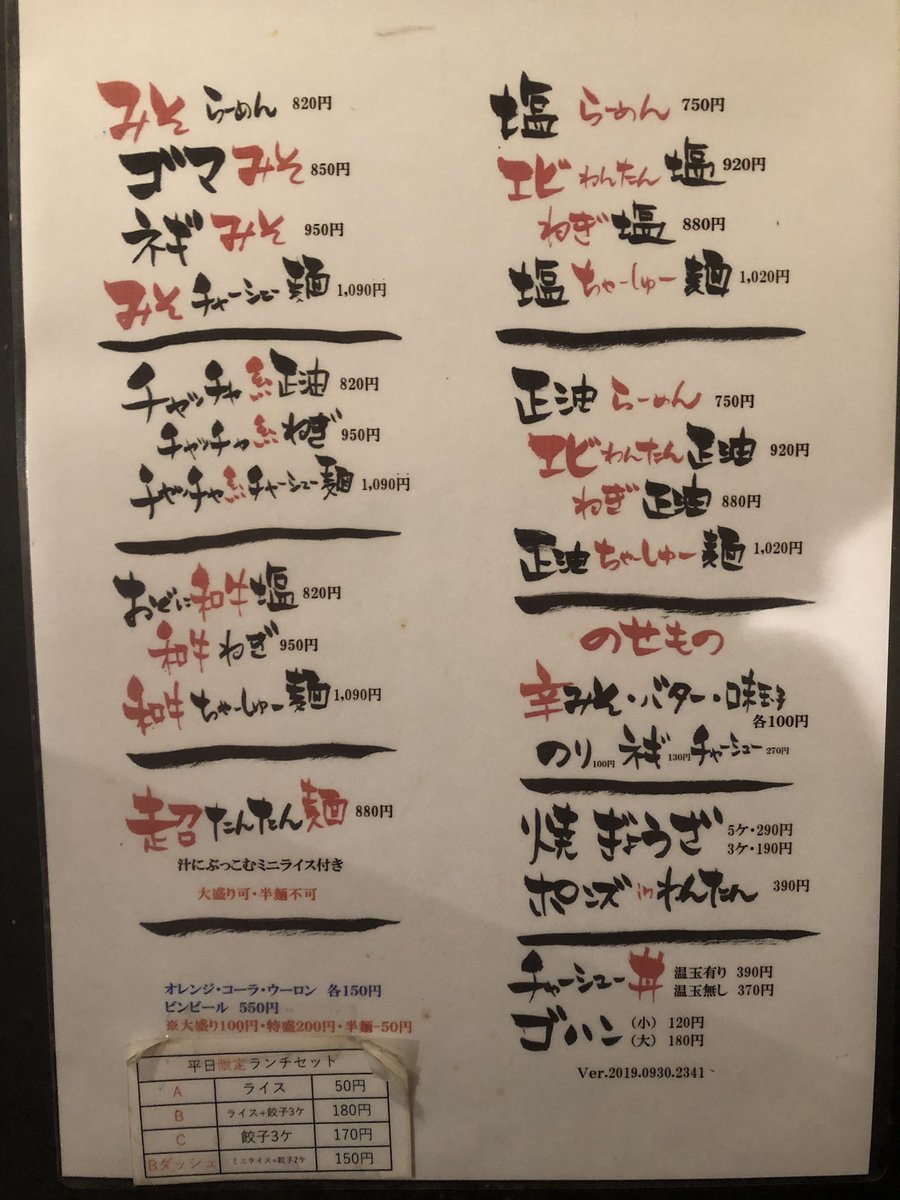 みそ らーめん 820円
ゴマ みそ 850円
ネギ みそ 950円
みそ チャーシュー 麺 1,090円
チャッチャ 糸 正油 820円
チャッチャ 糸 ねぎ 950円
チャッチャ 糸 チャーシュー 麺 1,090円
おぜに 和牛 塩 820円
和牛 ねぎ 950円
和牛 ちゃーしゅー 麺 1,090円
超 たんたん 麺 880円
汁にぶっこむミニライス付き
大盛り可・半麺不可
オレンジ・コーラ・ウーロン 各150円
ビンビール 550円
※大盛り100円・特盛200円・半麺-50円
平日限定ランチセット
A ライス 50円
B ライス+餃子3ケ 180円
C 餃子3ケ 170円
Bダッシュ ミニライス+餃子2ケ 150円
塩 らーめん 750円
エビ わんたん 塩 920円
ねぎ 塩 880円
塩 ちゃーしゅー 麺 1,020円
正油 らーめん 750円
エビ わんたん 正油 920円
ねぎ 正油 880円
正油 ちゃーしゅー 麺 1,020円
のせもの
辛みそ・バター・味玉子
各100円
のり 100円 ネギ 130円 チャーシュー 270円
焼 ぎょうざ 5ケ・290円
3ケ・190円
ポンズ in わんたん 390円
チャーシュー 丼 温玉有り 390円
温玉無し 370円
ゴハン (小) 120円
(大) 180円
Ver.2019.0930.2341